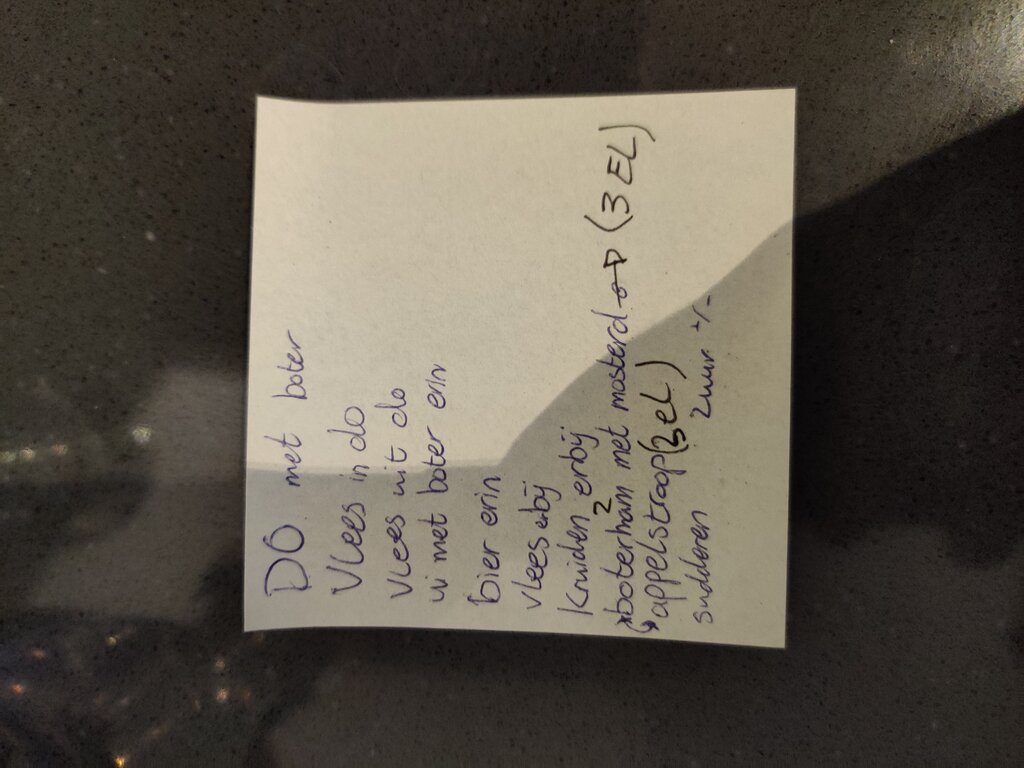 DO met boter
Vlees in do
Vlees uit do
ui met boter erin
bier erin
vlees erbij
Kruiden erbij
2
boterham met mosterd op (3 EL)
appelstroop (3 eL)
sudderen 2 uur +/-